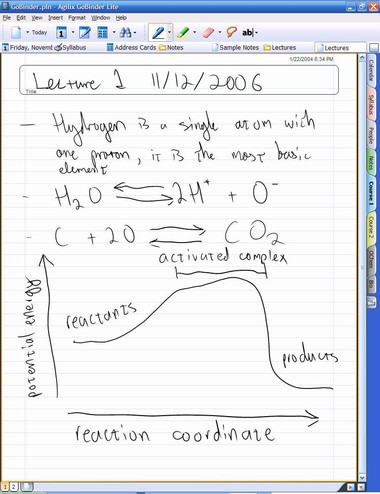 GoBinder.pln - Agilix GoBinder Lite
File Edit View Insert Format Window Help
Today
Friday, Novemb
Syllabus
Address Cards
Notes
Sample Notes
Lectures
Lectures
1/22/2004 8:34 PM
Lecture 1 11/12/2006
Title
- Hydrogen is a single atom with
one proton, it is the most basic
element
- H2O ⇌ 2H+ + O-
- C + 2O ⇌ CO2
activated complex
potential energy
reactants
products
reaction coordinate
Calendar
Syllabus
People
Notes
Course 1
Course 2
OChem
Bio
1 2